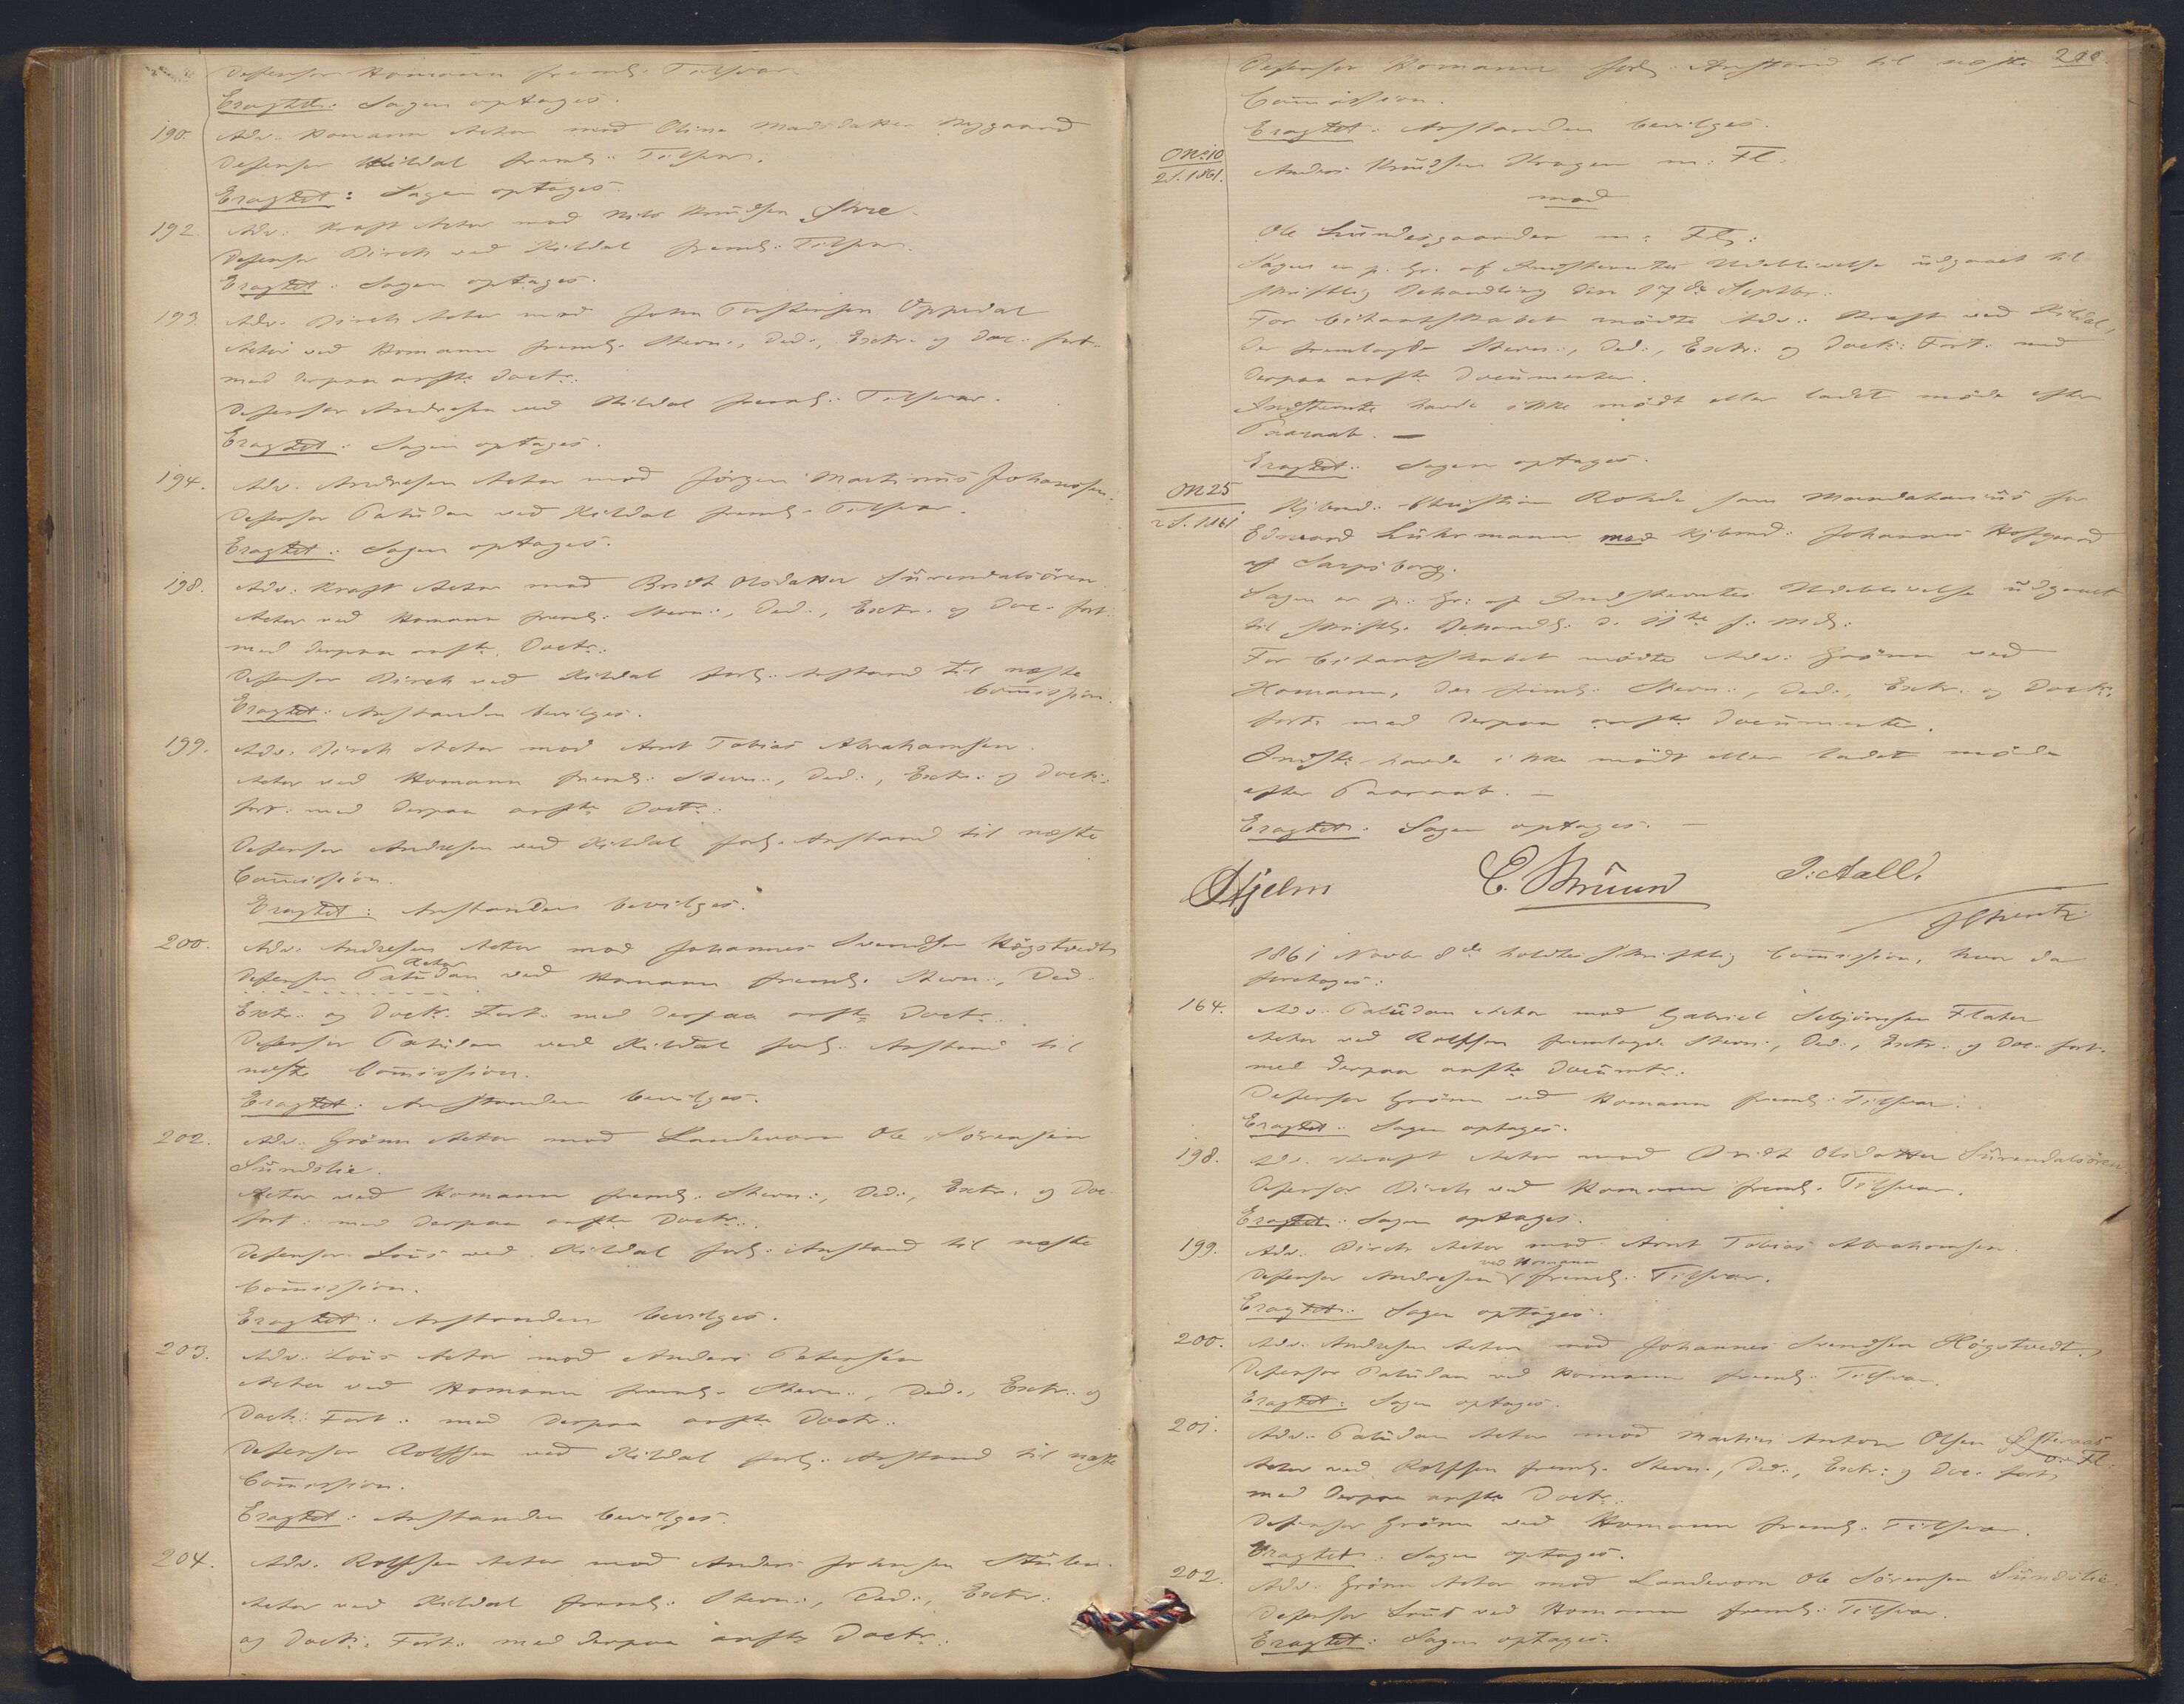 Defensor Homann freml: Tilsvar
Eragtet: Sagen optages.
190. Adv. Homann Actor mod Oline Madsdatter Nygaard
Defensor Kildal freml: Tilsvar.
Eragtet: Sagen optages.
192. Adv: Kraft Actor mod Nils Knudsen
Defensor Birch ved Kildal freml: Tilsvar.
Eragtet: Sagen optages.
193. Adv. Birch Actor mod John Torstensen Oppedal
Actor ved Homann freml. Stevn:, Ded:, Extr. og Doc: fort:
med derpaa anfte Doctr:
Defensor Andresen ved Kildal freml: Tilsvar.
Eragtet: Sagen optages.
194. Adv. Andresen Actor mod Jörgen Martinus Johansen.
Defensor Paludan ved Kildal freml. Tilsvar.
Eragtet: Sagen optages.
198. Adv: Kraft Actor mod Bridt Olsdatter Surendalsören.
Actor ved Homann freml: Stevn:, Ded:, Extr. og Doc. fort:
med derpaa anfte Doctr:
Defensor Birch ved Kildal forl: Anstand til næste
Com̄ission.
Eragtet: Anstanden bevilges.
199. Adv. Birch Actor mod Arnt Tobias Abrahamsen.
Actor ved Homann freml: Stevn:, Ded:, Extr: og Doctr:
fort: med derpaa anfte Doctr:
Defensor Andresen ved Kildal forl. Anstand til næste
Com̄ission.
Eragtet: Anstanden bevilges.
200. Adv. Andresen Actor mod Johannes Svendsen Högstvedt
Actor
Defensor Paludan ved Homann freml. Stevn:, Ded:
Extr: og Doctr. Fort: med derpaa anfte Doctr:
Defensor Paludan ved Kildal forl. Anstand til
næste Com̄ission.
Eragtet: Anstanden bevilges.
202. Adv. Grönn Actor mod Landevorn Ole Sörensen
Sundslie.
Actor ved Homann freml: Stevn:, Ded:, Extr: og Doc
fort: med derpaa anfte Doctr:.
Defensor Lous ved Kildal forl: Anstand til næste
Com̄ission.
Eragtet: Anstanden bevilges.
203. Adv: Lous Actor mod Anders Petersen
Actor ved Homann freml. Stevn:, Ded:, Extr: og
Doctr: Fort: med derpaa anfte Doctr:
Defensor Rolfsen ved Kildal forl: Anstand til næste
Com̄ission.
Eragtet: Anstanden bevilges.
204. Adv. Rolfsen Actor mod Anders Johnsen
Actor ved Kildal freml: Stevn:, Ded:, Extr:
og Doctr: Fort: med derpaa anfte Doctr:
200.
Defensor Homann forl: Anstand til næste
Com̄ission.
Eragtet: Anstanden bevilges.
ON: 10
2S. 1861. Anders Knudsen Kragen m: Fl.
mod
Ole Lundesgaarden m: Fl:
Sagen er p. Gr. af Indstevntes Udeblivelse udgaaet til
skriftlig Behandling den 17de Septbr:
For Citantskabet mödte Adv: Kraft ved Kildal,
der fremlagde Stevn:, Ded:, Extr: og Doctr: Fort: med
derpaa anfte Documenter.
Indstevnte havde ikke mödt eller ladet möde efter
Paaraab. —
Eragtet: Sagen optages.
ON 25
2S. 1861. Kjbmd: Christian Rohde som Mandatarius for
Edward Lührmann mod Kjbmd: Johannes Hofgaard
af Sarpsborg.
Sagen er p: Gr: af Indstevntes Udeblivelse udgaaet
til skriftl: Behandl: d. 11te f: Md:
For Citantskabet mödte Adv: Grönn ved
Homann, der freml: Stevn:, Ded:, Extr: og Doctr:
fort: med derpaa anfte Documenter.
Indstte havde ikke mödt eller ladet möde
efter Paaraab. —
Eragtet: Sagen optages. —
Hjelm C. Bruun J: Aall.
1861 Novbr 8de holdtes skriftlig Com̄ission, hvor da
foretoges:
164. Adv. Paludan Actor mod Gabriel Sebjörnsen Flater
Actor ved Rolfsen fremlagde Stevn:, Ded:, Extr: og Doc: fort:
med derpaa anfte Documtr:
Defensor Grönn ved Homann freml: Tilsvar.
Eragtet: Sagen optages.
198. Adv. Kraft Actor mod Bridt Olsdatter Surendalsören.
Defensor Birch ved Homann freml. Tilsvar.
Eragtet: Sagen optages.
199. Adv. Birch Actor mod Arnt Tobias Abrahamsen.
ved Homann
Defensor Andresen freml: Tilsvar.
Eragtet: Sagen optages.
200. Adv. Andresen Actor mod Johannes Svendsen Högstvedt.
Defensor Paludan ved Homann freml: Tilsvar.
Eragtet: Sagen optages.
201. Adv. Paludan Actor mod Martin Anton Olsen
m: Fl:
Actor ved Rolfsen freml. Stevn:, Ded:, Extr: og Doc: fort:
med derpaa anfte Doctr:
Defensor Grönn ved Homann freml: Tilsvar.
Eragtet: Sagen optages.
202. Adv. Grönn Actor mod Landevorn Ole Sörensen Sundslie.
Defensor Lous ved Homann freml: Tilsvar.
Eragtet: Sagen optages.